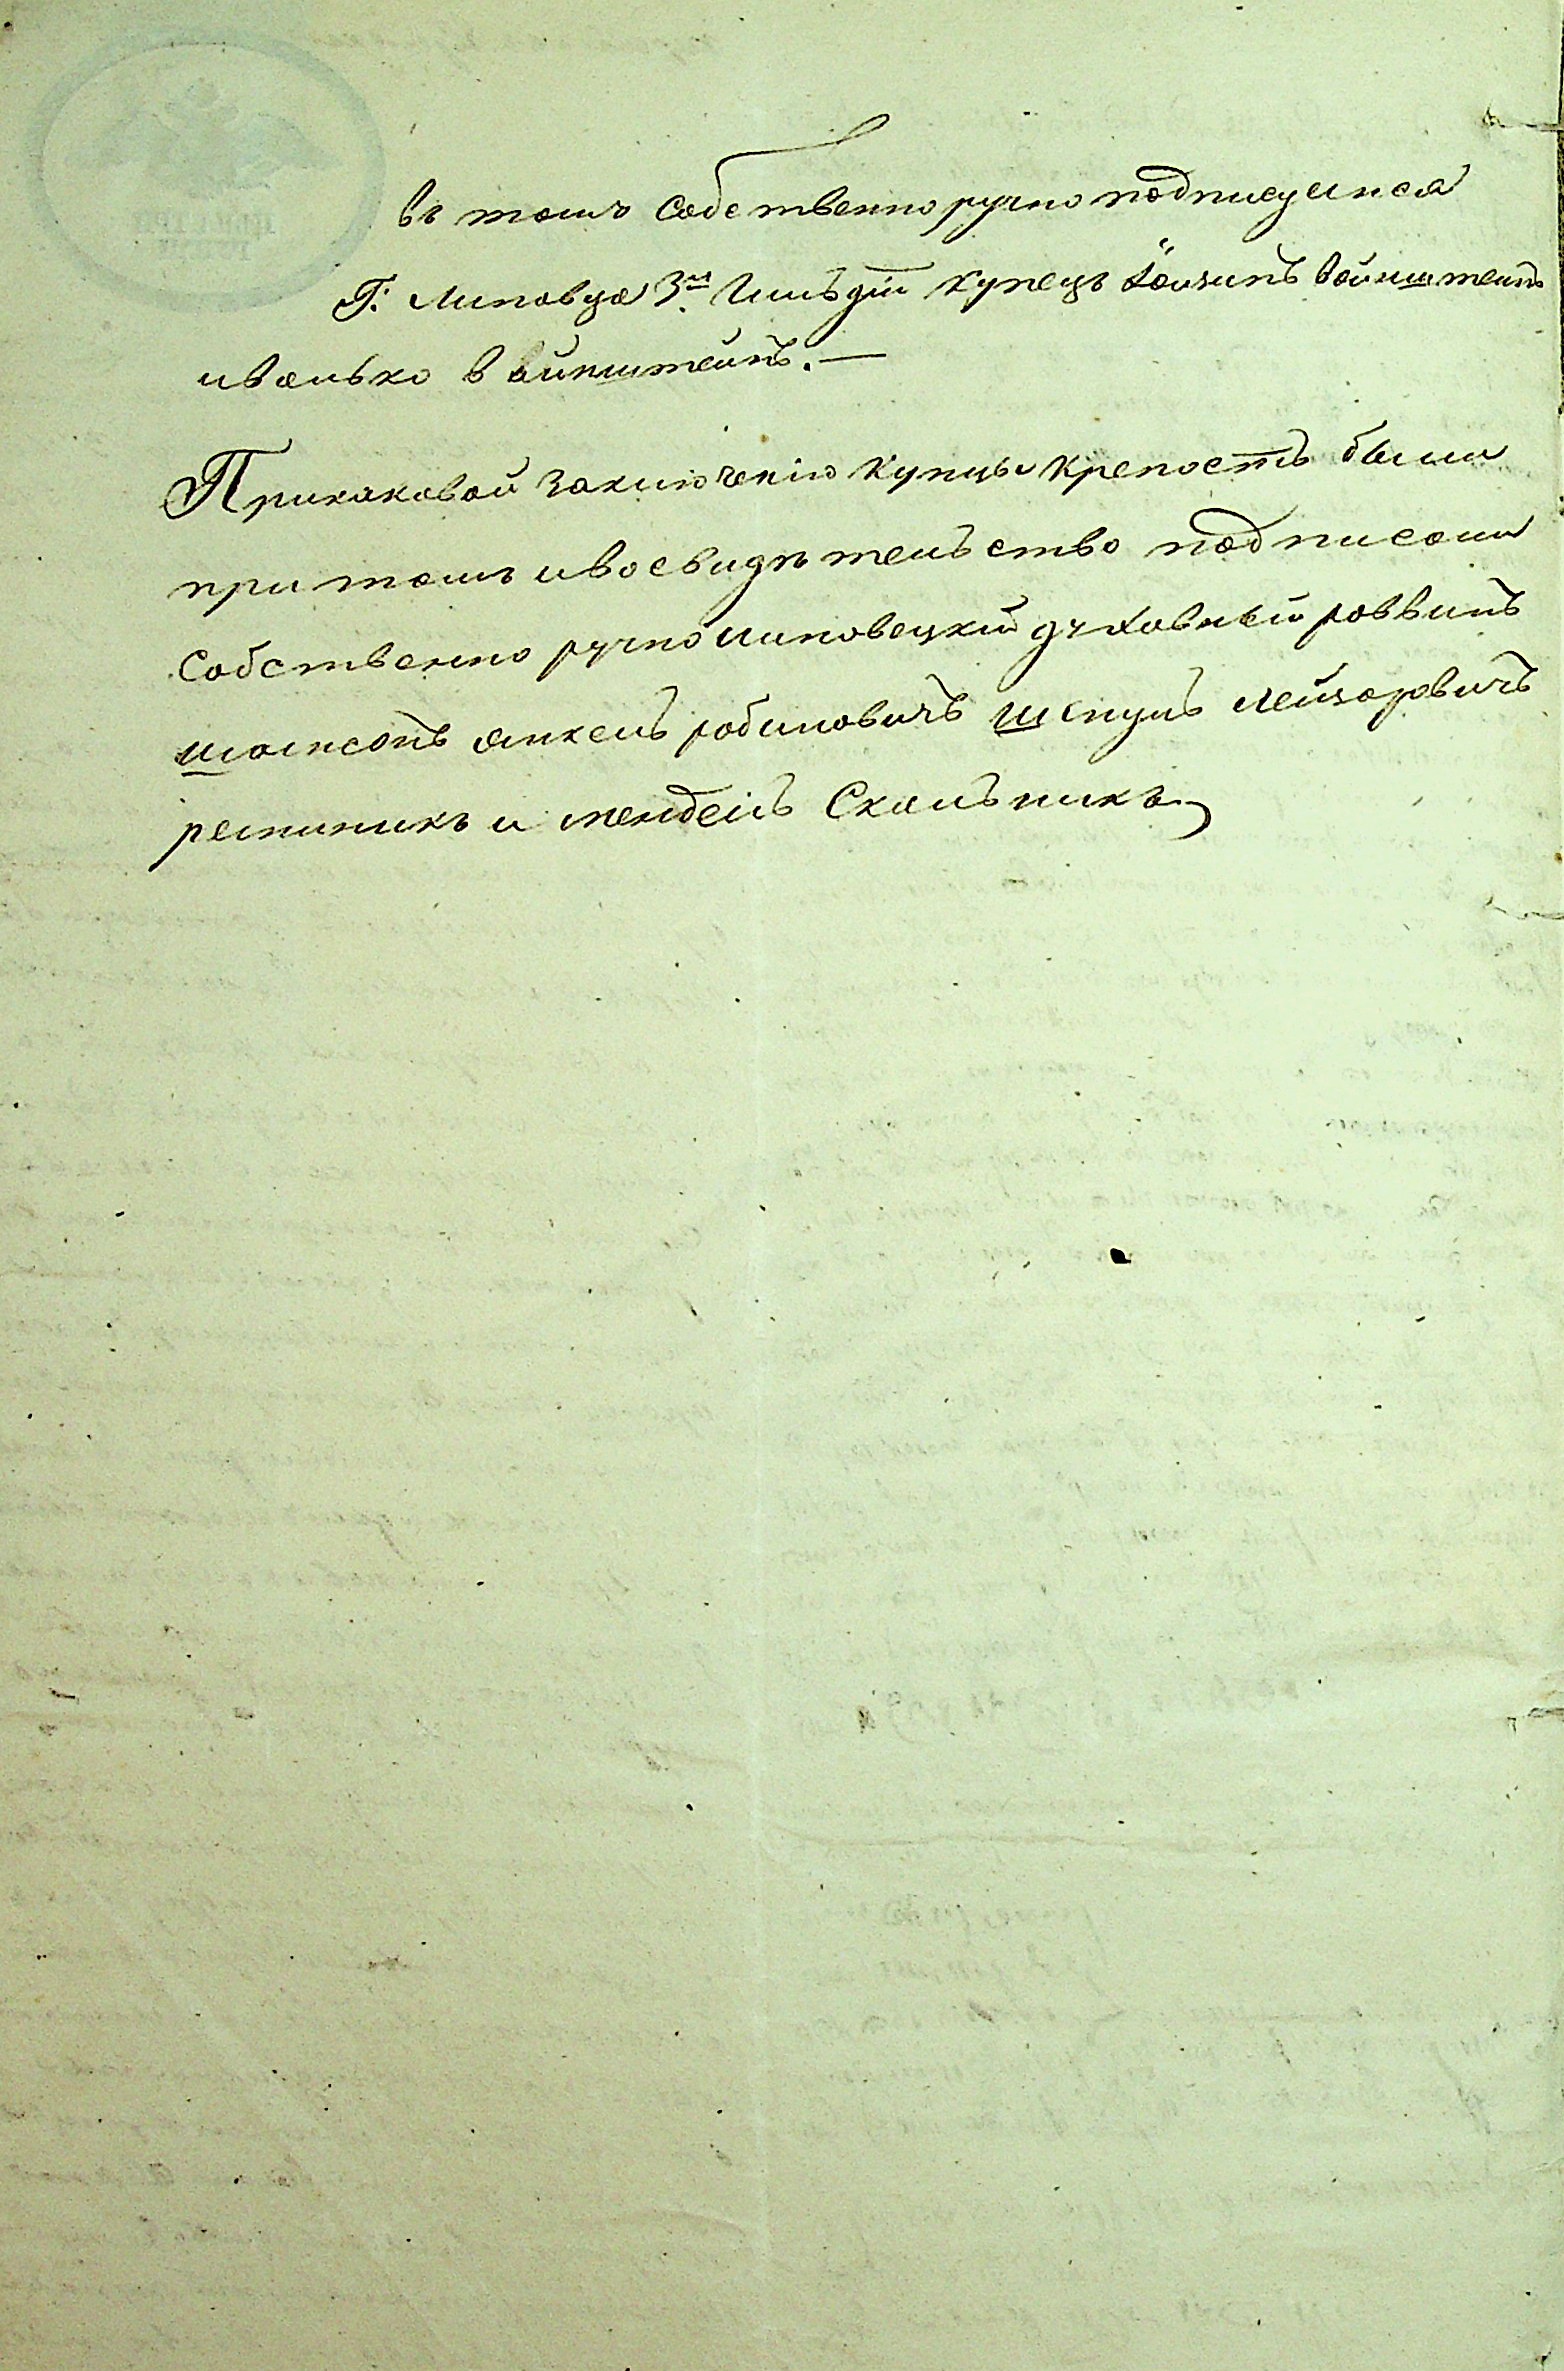 въ томъ собственноручно подписуемся
Г: Липовца 3й Гильдіи купецъ Зейликъ Вайнштейнъ
и Волько Вайнштейнъ.—
При каковой заключенію купцы крепость были
при томъ и во свидѣтельство подписали
собственно ручно липовецкій духовный раввинъ
шамсонъ янкель рабиновичъ шепудъ лейзаровичъ
ретникъ и мендель Скальникъ